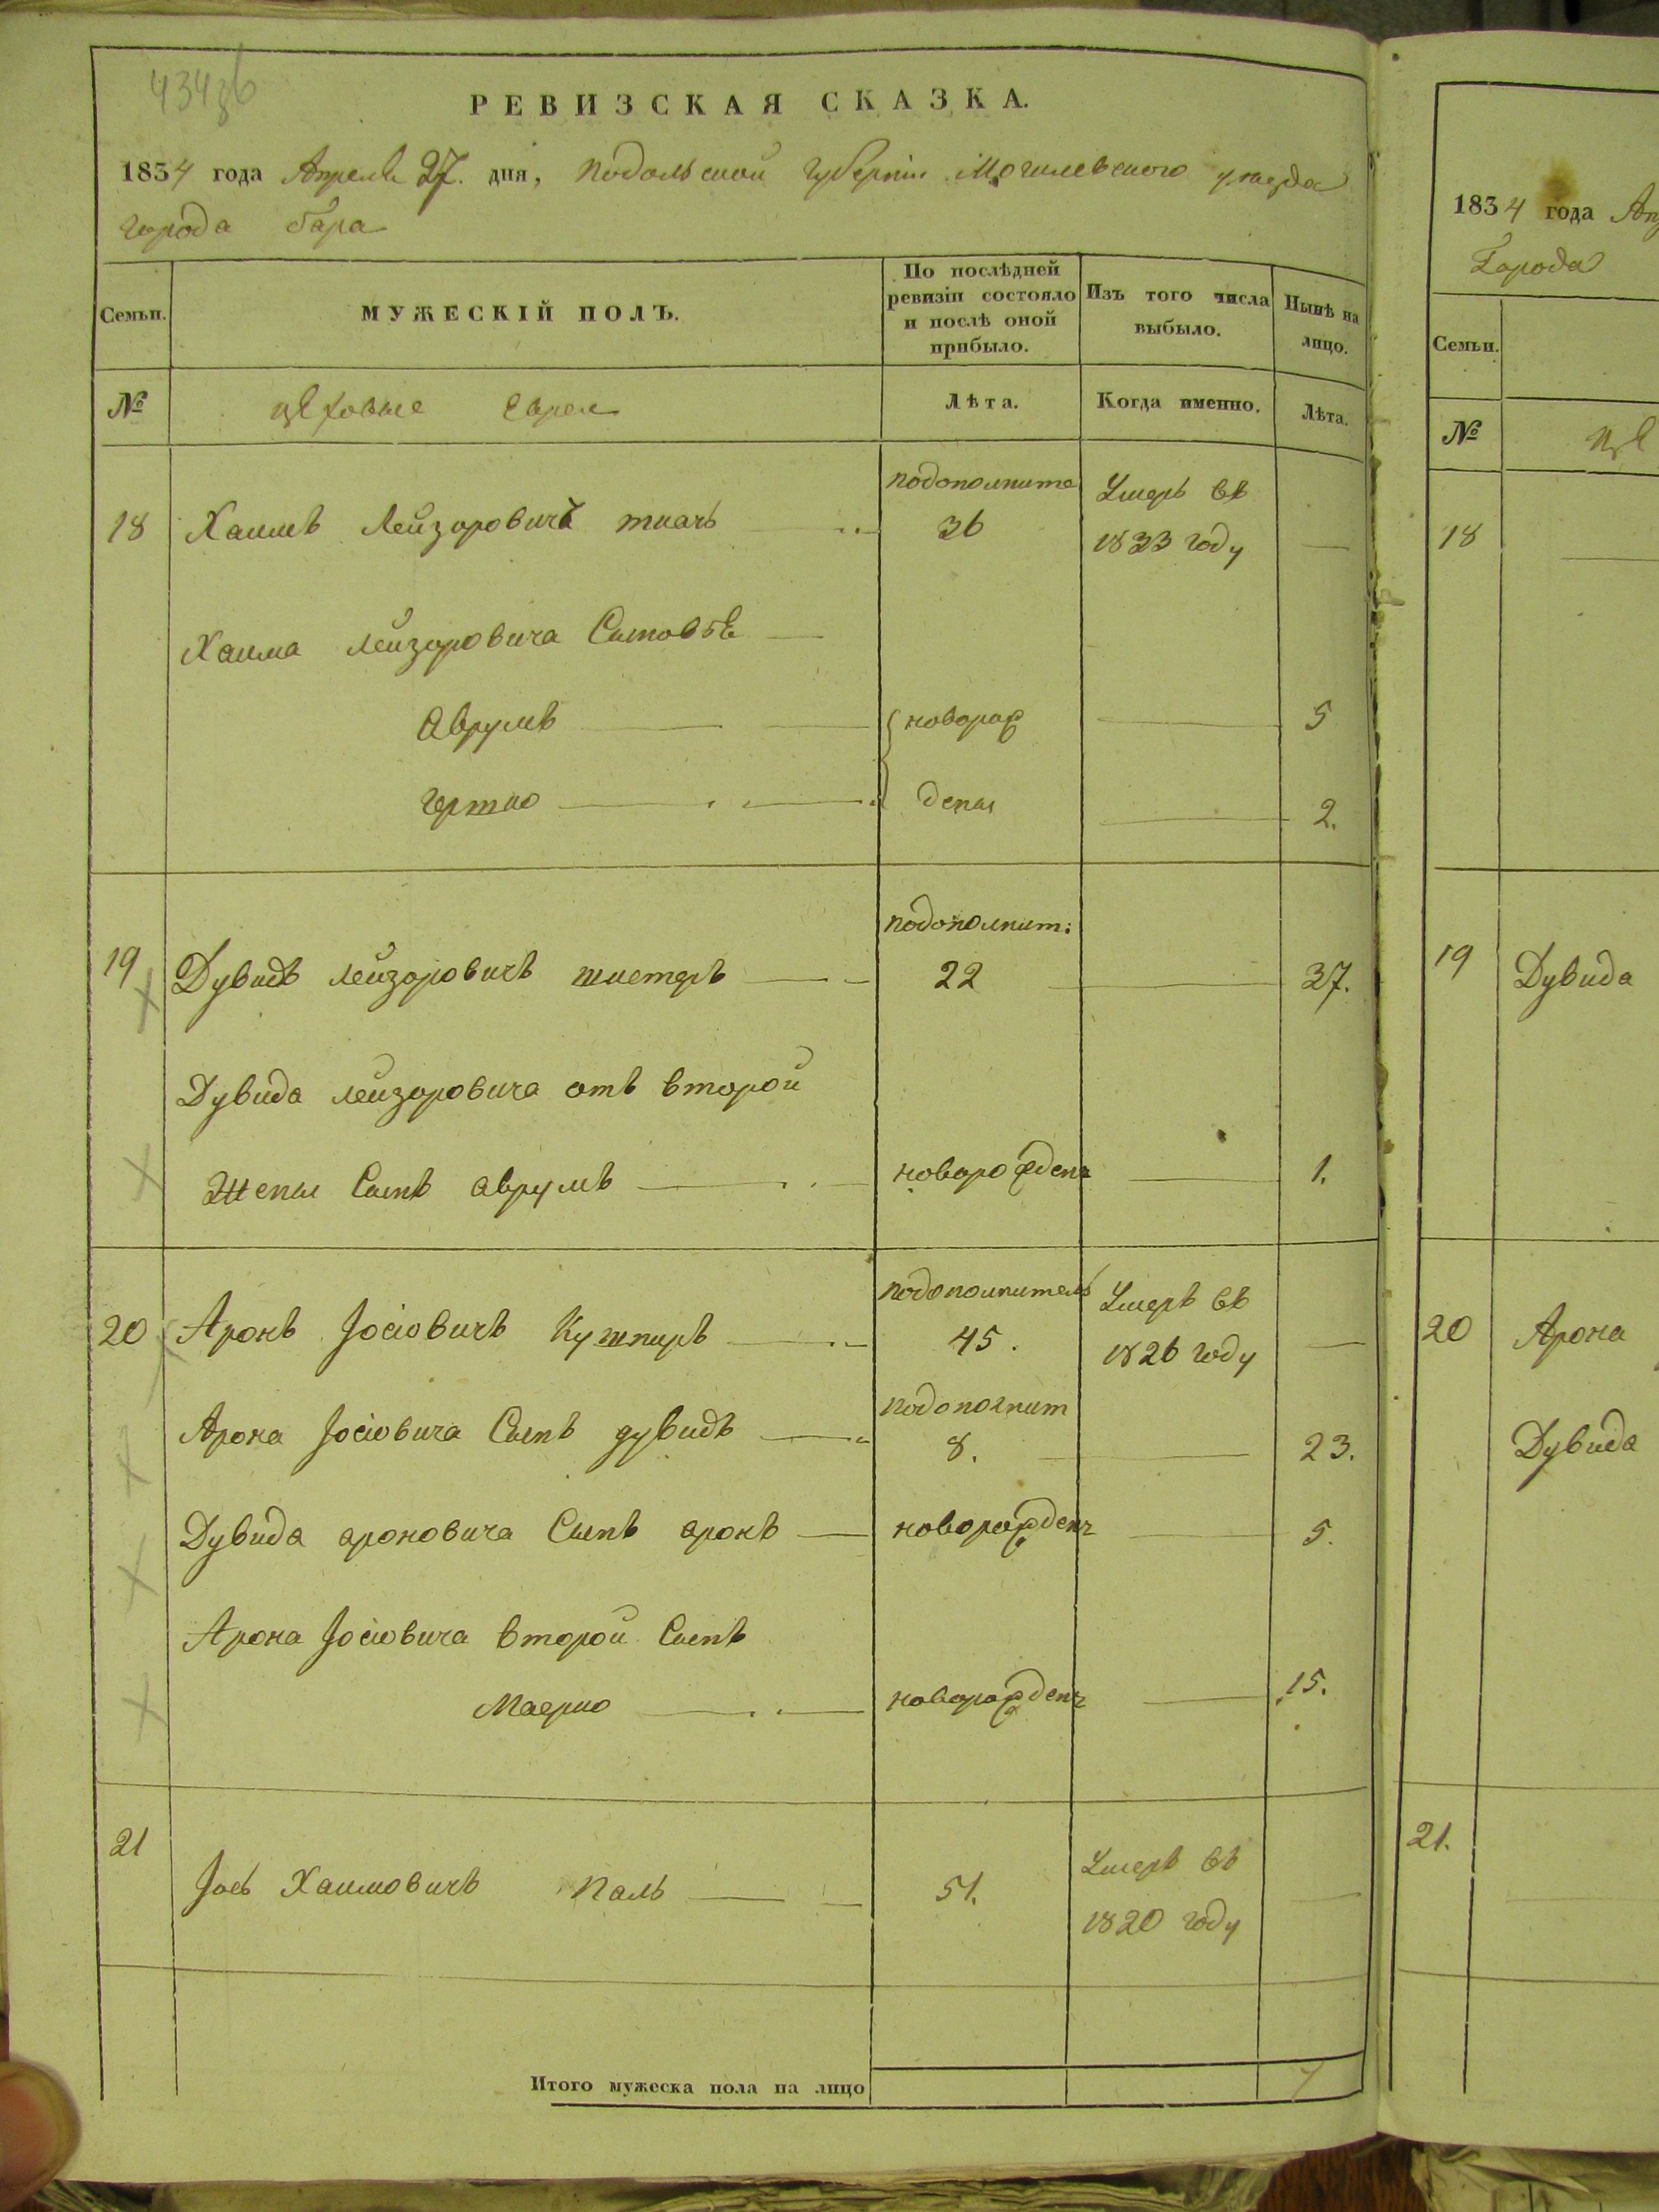 434зв
РЕВИЗСКАЯ СКАЗКА.
1834 года Апреля 27. дня, Подольской губернии Могилевского уезда
города Бара
Семьи.
МУЖЕСКІЙ ПОЛЪ.
По послѣдней
ревизіи состояло
и послѣ оной
прибыло.
Изъ того числа
выбыло.
Нынѣ на
лицо.
№
цеховые Евреи
Лѣта.
Когда именно.
Лѣта.
подополните
Умеръ въ
18 Хаимъ Лейзоровичъ ткачъ 36 1833 году —
Хаима Лейзоровича Сыновья
Аврумъ новорож 5
Гершко дены 2.
подополнит:
19 Дувидъ Лейзоровичъ 22 37.
Дувида Лейзоровича отъ второй
Жены Сынъ Аврумъ новорожден 1.
подополнитель Умеръ въ
20 Аронъ Іосіовичъ Кушниръ 45. 1826 году —
подополнит
Арона Іосіовича Сынъ дувидъ 8. 23.
Дувида ароновича Сынъ аронъ новорожден 5.
Арона Іосіовича второй Сынъ
Маерко новорожден 15.
21
Умеръ въ
Іось Хаимовичъ Паль 51. —
1820 году
Итого мужеска пола на лицо 7
1834 года Апр
Города
Семьи.
№ це
18
19 Дувида
20 Арона
Дувида
21.